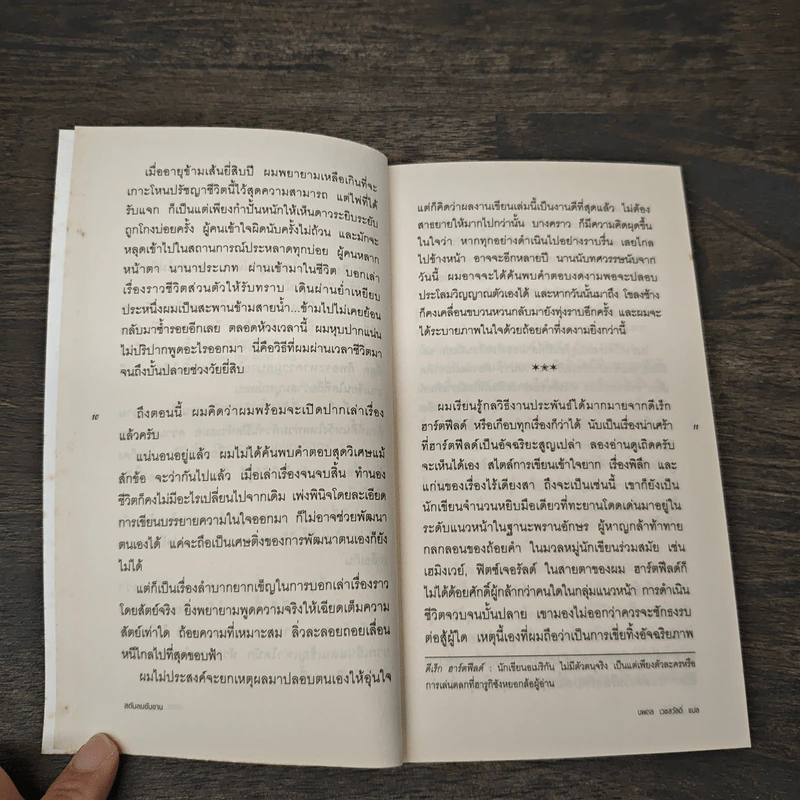 เมื่ออายุข้ามเส้นยี่สิบปี ผมพยายามเหลือเกินที่จะ
เกาะโหนปรัชญาชีวิตนี้ไว้สุดความสามารถ แต่ไพ่ที่ได้
รับแจก ก็เป็นแต่เพียงกำปั้นหนักให้เห็นดาวระยิบระยับ
ถูกโกงบ่อยครั้ง ผู้คนเข้าใจผิดนับครั้งไม่ถ้วน และมักจะ
หลุดเข้าไปในสถานการณ์ประหลาดทุกบ่อย ผู้คนหลาก
หน้าตา นานาประเภท ผ่านเข้ามาในชีวิต บอกเล่า
เรื่องราวชีวิตส่วนตัวให้รับทราบ เดินผ่านย่ำเหยียบ
ประหนึ่งผมเป็นสะพานข้ามสายน้ำ...ข้ามไปไม่เคยย้อน
กลับมาซ้ำรอยอีกเลย ตลอดห้วงเวลานี้ ผมหุบปากแน่น
ไม่ปริปากพูดอะไรออกมา นี่คือวิธีที่ผมผ่านเวลาชีวิตมา
จนถึงบั้นปลายช่วงวัยยี่สิบ
ถึงตอนนี้ ผมคิดว่าผมพร้อมจะเปิดปากเล่าเรื่อง
แล้วครับ
แน่นอนอยู่แล้ว ผมไม่ได้ค้นพบคำตอบสุดวิเศษแม้
สักข้อ จะว่ากันไปแล้ว เมื่อเล่าเรื่องจนจบสิ้น ทำนอง
ชีวิตก็คงไม่มีอะไรเปลี่ยนไปจากเดิม เพ่งพินิจโดยละเอียด
การเขียนบรรยายความในใจออกมา ก็ไม่อาจช่วยพัฒนา
ตนเองได้ แค่จะถือเป็นเศษติ่งของการพัฒนาตนเองก็ยัง
ไม่ได้
แต่ก็เป็นเรื่องลำบากยากเข็ญในการบอกเล่าเรื่องราว
โดยสัตย์จริง ยิ่งพยายามพูดความจริงให้เฉียดเต็มความ
สัตย์เท่าใด ถ้อยความที่เหมาะสม ลิ่วละลอยถอยเลื่อน
หนีไกลไปที่สุดขอบฟ้า
ผมไม่ประสงค์จะยกเหตุผลมาปลอบตนเองให้อุ่นใจ
10
สดับลมขับขาน
แต่ก็คิดว่าผลงานเขียนเล่มนี้เป็นงานดีที่สุดแล้ว ไม่ต้อง
สาธยายให้มากไปกว่านั้น บางคราว ก็มีความคิดผุดขึ้น
ในใจว่า หากทุกอย่างดำเนินไปอย่างราบรื่น เลยไกล
ไปข้างหน้า อาจจะอีกหลายปี นานนับทศวรรษนับจาก
วันนี้ ผมอาจจะได้ค้นพบคำตอบงดงามพอจะปลอบ
ประโลมวิญญาณตัวเองได้ และหากวันนั้นมาถึง โขลงช้าง
ก็คงเคลื่อนขบวนหวนกลับมายังทุ่งราบอีกครั้ง และผมจะ
ได้ระบายภาพในใจด้วยถ้อยคำที่งดงามยิ่งกว่านี้
***
ผมเรียนรู้กลวิธีงานประพันธ์ได้มากมายจากดีเร็ก
ฮาร์ตฟีลด์ หรือเกือบทุกเรื่องก็ว่าได้ นับเป็นเรื่องน่าเศร้า
ที่ฮาร์ตฟีลด์เป็นอัจฉริยะสูญเปล่า ลองอ่านดูเถิดครับ
จะเห็นได้เอง สไตล์การเขียนเข้าใจยาก เรื่องพิลึก และ
แก่นของเรื่องไร้เดียงสา ถึงจะเป็นเช่นนี้ เขาก็ยังเป็น
นักเขียนจำนวนหยิบมือเดียวที่ทะยานโดดเด่นมาอยู่ใน
ระดับแนวหน้าในฐานะพรานอักษร ผู้หาญกล้าท้าทาย
กลกลอนของถ้อยคำ ในมวลหมู่นักเขียนร่วมสมัย เช่น
เฮมิงเวย์, ฟิตซ์เจอรัลด์ ในสายตาของผม ฮาร์ตฟีลด์ก็
ไม่ได้ด้อยศักดิ์ผู้กล้ากว่าคนใดในกลุ่มแนวหน้า การดำเนิน
ชีวิตจวบจนบั้นปลาย เขามองไม่ออกว่าควรจะชักธงรบ
ต่อสู้ผู้ใด เหตุนี้เองที่ผมถือว่าเป็นการเขี่ยทิ้งอัจฉริยภาพ
11
ดีเร็ก ฮาร์ตฟีลด์ : นักเขียนอเมริกัน ไม่มีตัวตนจริง เป็นแต่เพียงตัวละครหรือ
การเล่นตลกที่ฮารูกิซังหยอกล้อผู้อ่าน
นพดล เวชสวัสดิ์ แปล